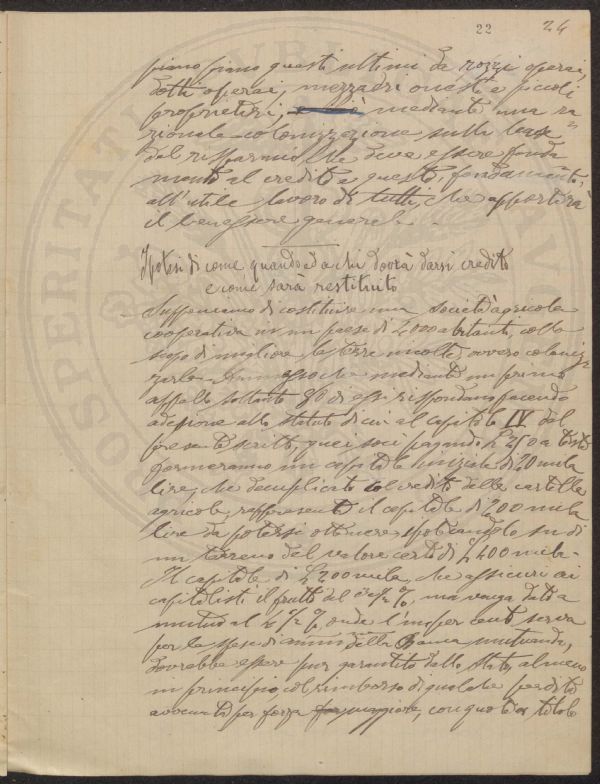 22 24
piano piano questi ultimi da rozzi operai,
dotti operai, mezzadri onesti e piccoli
proprietari, mediante una ra
zionale colonizzazione sulla base
del risparmio che deve essere fonda
mento al credito e questo, fondamento,
all'utile lavoro di tutti, che apporterà
il benessere generale.
Ipotesi di come quando ed a chi dovrà darsi credito
e come sarà restituito
Supponiamo di costituire una società agricola
cooperativa in un paese di 2,000 abitanti, collo
scopo di migliorare le terre incolte, ovvero coloniz
zarle. Ammesso che mediante un primo
appello soltanto 80 di essi rispondano facendo
adesione allo statuto di cui al capitolo IV del
presente scritto, quei soci pagando £ 250 a testa
formeranno un capitale iniziale di 20 mila
lire, che decuplicato col credito delle cartelle
agricole, rappresenta il capitale di 200 mila
lire da potersi ottenere ipotecandolo su di
un terreno del valore certo di £ 400 mila.
Il capitale di £ 200 mila, che assicuri ai
capitalisti il frutto del % ma venga dato a
mutuo al % onde l'uno per cento serva
per le spese di amm.ne della Banca mutuante,
dovrebbe essere pur garantito dallo Stato, almeno
in principio, col rimborso di qualche perdita
avvenuta per forza maggiore, con quote a titolo